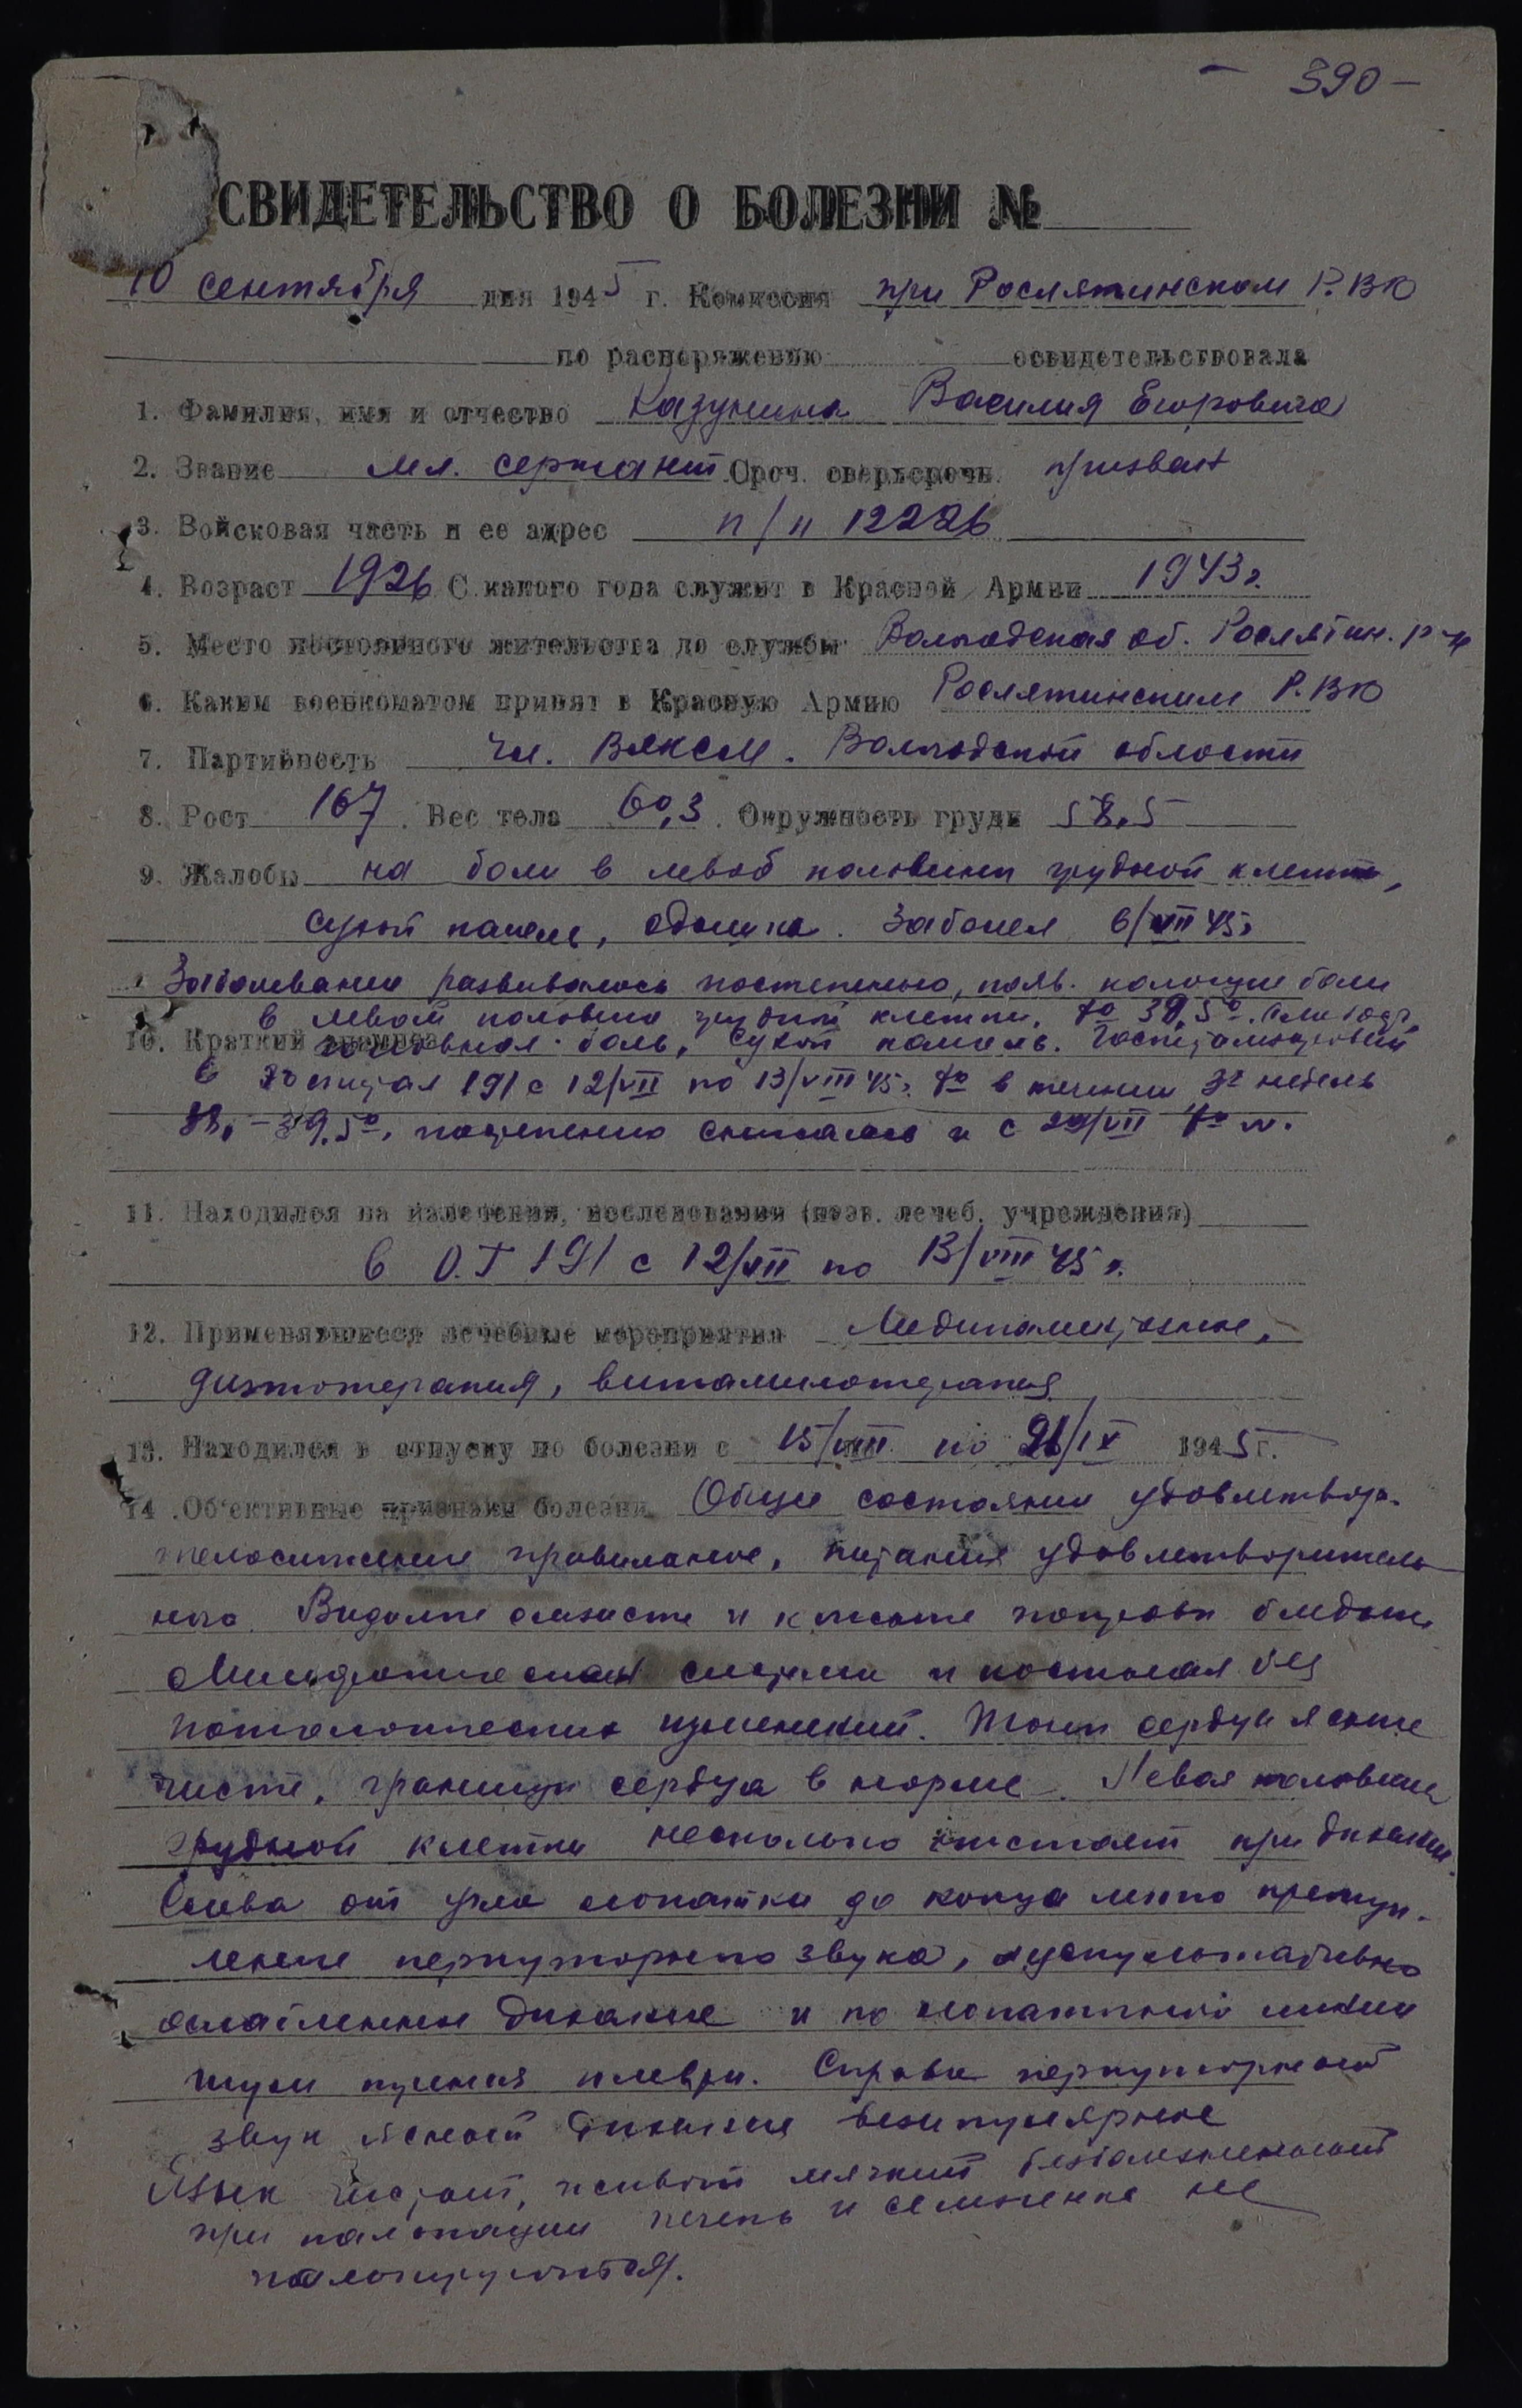 — 390 —
СВИДЕТЕЛЬСТВО О БОЛЕЗНИ №
10 сентября дня 1945 г. Комиссия при Рослятинском Р.ВК
по распоряжению освидетельствовала
1. Фамилия, имя и отчество Казунина Василия Егоровича
2. Звание мл. сержант Сроч. сверхсрочн. призват
3. Войсковая часть и ее адрес п/п 12226
4. Возраст 1926 С какого года служит в Красной Армии 1943 г.
5. Место постоянного жительства до службы Вологодская об. Рослятин. р-н
6. Каким военкоматом принят в Красную Армию Рослятинским Р.ВК
7. Партийность чл. ВЛКСМ. Вологодской области
8. Рост 167. Вес тела 60,3. Окружность груди 58,5
9. Жалобы на боли в левой половине грудной клетки,
сухой кашель, одышка. Заболел 6/VII 45 г
Заболевание развивалось постепенно, появ. колющие боли
в левой половине грудной клетки, t° 39,5°.
10. Краткий анамнез головная боль, сухой кашель. Госпитализирован
в госпитал 191 с 12/VII по 13/VIII 45 г. t° в течении 3х недель
38, – 39,5°, постепенно снижалась и с 29/VII t° N.
11. Находился на излечении, исследовании (назв. лечеб. учреждения)
в О.Г 191 с 12/VII по 13/VIII 45 г.
12. Применявшиеся лечебные мероприятия Медикаментозное,
диэтотерапия, витаминотерапия
13. Находился в отпуску по болезни с 15/VIII по 26/IX 1945 г.
14. Об'ективные признаки болезни Общее состояние удовлетвор.
телосложение правильное, питания удовлетворитель
ного. Видимые слизисте и кожные покровы бледные
система и костная без
патологических изменений. Тоны сердца ясные
чисте, границы сердца в норме. Левая половина
грудной клетки несколько отстает при дыхании.
Слева от угла лопатки до конца легко притуп-
ление перкуторного звука, аускультативно
ослабленное дыхание и по лопаточной линии
шум трения плевры. Справа перкуторной
звук ясной дыхание везикулярное
Язык чистой, живот мягкий безболезненной
при пальпации печень и селезенка не
пальпируются.